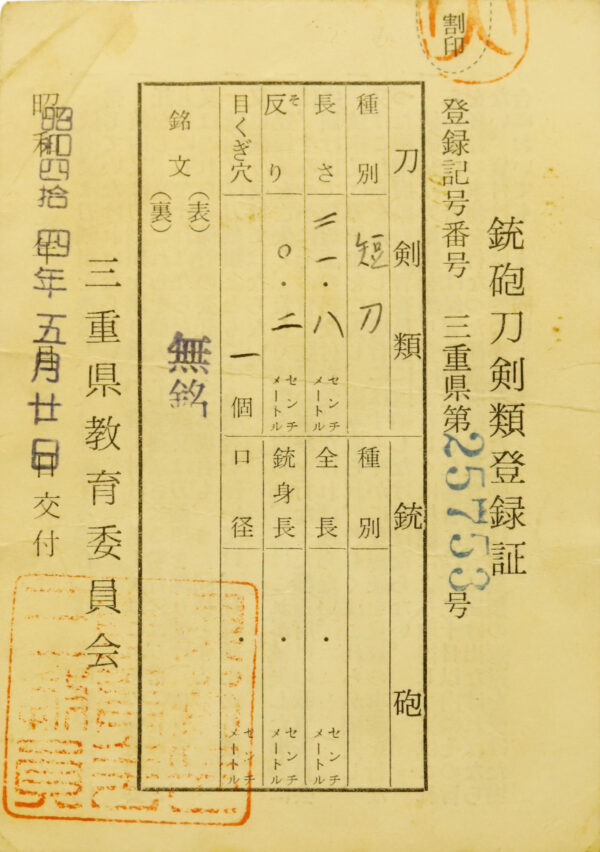 割印
銃砲刀剣類登録証
登録記号番号 三重県第25753号
刀剣類
種別 短刀
長さ 二一・八 センチメートル
反り 〇・二 センチメートル
そ
目くぎ穴 一個
銘文 (表) 無銘
(裏)
銃砲
種別
全長 ・ センチメートル
銃身長 ・ センチメートル
口径 ・ センチメートル
三重県教育委員会
昭和四拾四年五月廿日交付